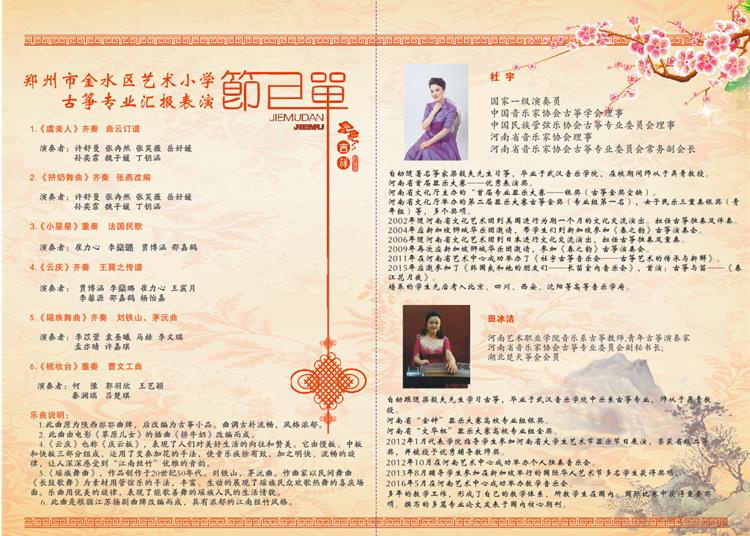 郑州市金水区艺术小学
古筝专业汇报表演
節目單
JIEMUDAN
JIEMU
吉祥
1.《虞美人》齐奏 曲云订谱
演奏者：许舒曼 张冉然 张芙薇 岳好媛
孙奕霏 魏子媛 丁钥涵
2.《挤奶舞曲》齐奏 张燕改编
演奏者：许舒曼 张冉然 张笑薇 岳好媛
孙奕霏 魏子媛 丁钥涵
3.《小星星》重奏 法国民歌
演奏者：崔力心 李燊璐 贾博涵 邵嘉鹤
4.《云庆》齐奏 王巽之传谱
演奏者： 贾博涵 李燊璐 崔力心 王宸月
李馨源 邵嘉鹤 杨怡嘉
5.《瑶族舞曲》齐奏 刘铁山、茅沅曲
演奏者：李苡萱 袁圣曦 马赫 李文瑞
孟亦晴 许嘉琪
6.《梳妆台》重奏 曹文工曲
演奏者： 何 豫 郭羽欣 王艺颖
秦澜瑞 吕楚琪
乐曲说明：
1.此曲原为陕西郿鄠曲牌，后改编为古筝小品。曲调古朴流畅，风格浓郁。
2.此曲由电影《草原儿女》的插曲《挤牛奶》改编而成。
4.《云庆》也称《庆云板》，表现了人们对美好生活的向往和赞美。它由慢板、中板
和快板三部分组成，运用了变奏加花的手法，使音乐徐徐有致，加之明快、流畅的旋
律，让人深深感受到“江南丝竹”优雅的音韵。
5.《瑶族舞曲》，作品创作于20世纪50年代。刘铁山、茅沅曲。作曲家以民间舞曲
《长鼓歌舞》为素材用管弦乐的手法，丰富、生动的展现了瑶族民众欢歌热舞的喜庆场
面。乐曲用优美的旋律，表现了能歌善舞的瑶族人民的生活情貌。
6.此曲是根据江苏扬剧曲牌改编而成，具有浓郁的江南丝竹风格。
杜 宇
国家一级演奏员
中国音乐家协会古筝学会理事
中国民族管弦乐协会古筝专业委员会理事
河南省音乐家协会理事
河南省音乐家协会古筝专业委员会常务副会长
自幼随著名筝家梁毅夫先生习筝，毕业于武汉音乐学院，在校期间师从于高青教授。
河南省首届器乐大赛——优秀表演奖。
河南省文化厅主办的“首届专业器乐大赛——银奖（古筝金奖空缺）。
河南省文化厅举办的第二届器乐大赛古筝金奖（专业组第一名），女子民乐三重奏银奖（青
年组）等，多个奖项。
2002年随河南省文化艺术团到美国进行为期一个月的文化交流演出，担任古筝独奏及伴奏。
2004年应新加坡狮城华乐团邀请，带学生们到新加坡参加《春之韵》古筝演奏会。
2006年随河南省文化艺术团到日本进行文化交流演出，担任古筝独奏及重奏。
2009年再次应新加坡狮城华乐团邀请，参加《春之韵》古筝演奏会。
2011年在河南省艺术中心成功举办了《杜宇古筝音乐会——古筝艺术的传承与新解》。
2015年应邀参加了《韩国良和他的朋友们——长笛室内音乐会》，首演：古筝与笛——《春
江花月夜》。
培养的学生先后考入北京、四川、西安、沈阳等高等音乐学府。
田冰洁
河南艺术职业学院音乐系古筝教师，青年古筝演奏家
河南省音乐家协会古筝专业委员会副秘书长；
湖北楚天筝会会员
自幼跟随梁毅夫先生学习古筝，毕业于武汉音乐学院中乐系古筝专业，师从于高青教
授。
河南省“金钟”器乐大赛高校专业组银奖。
河南省“文华杯”器乐大赛高校专业组金奖。
2012年1月代表学院指导学生参加河南省大学生艺术节器乐节目展演，荣获省级二等
奖，并被授予优秀辅导教师奖。
2012年10月在河南艺术中心成功举办个人独奏音乐会。
2013年8月辅导学生参加在新加坡举行的国际华人艺术节多名学生获得奖项。
2016年5月在河南艺术中心成功举办教学音乐会。
多年的教学工作，形成了自己的教学体系，所教学生在国内、国际比赛中获得重要奖
项。撰写的多篇专业论文发表于国内核心期刊。